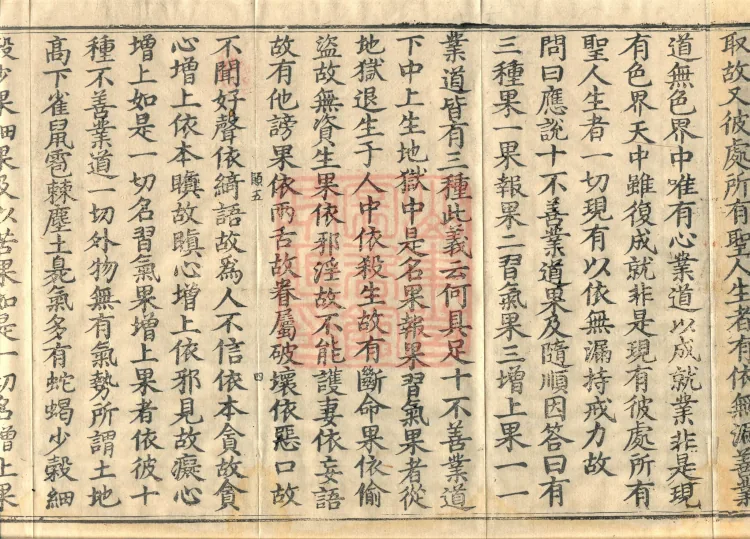 取故又彼處所有聖人生者有依無漏善業
道無色界中唯有心業道以成就業非是現
有色界天中雖復成就非是現有彼處所有
聖人生者一切現有以依無漏持戒力故
問曰應說十不善業道果及隨順因答曰有
三種果一果報果二習氣果三增上果一一
業道皆有三種此義云何具足十不善業道
下中上生地獄中是名果報果習氣果者從
地獄退生于人中依殺生故有斷命果依偷
盜故無資生果依邪淫故不能護妻依妄語
故有他謗果依兩舌故眷屬破壞依惡口故
願五
四
不聞好聲依綺語故為人不信依本貪故貪
心增上依本瞋故瞋心增上依邪見故癡心
增上如是一切名習氣果增上果者依彼十
種不善業道一切外物無有氣勢所謂土地
高下雀鼠雹棘塵土臭氣多有蛇蝎少穀細
穀少果細果及以苦果如是一切名增上果